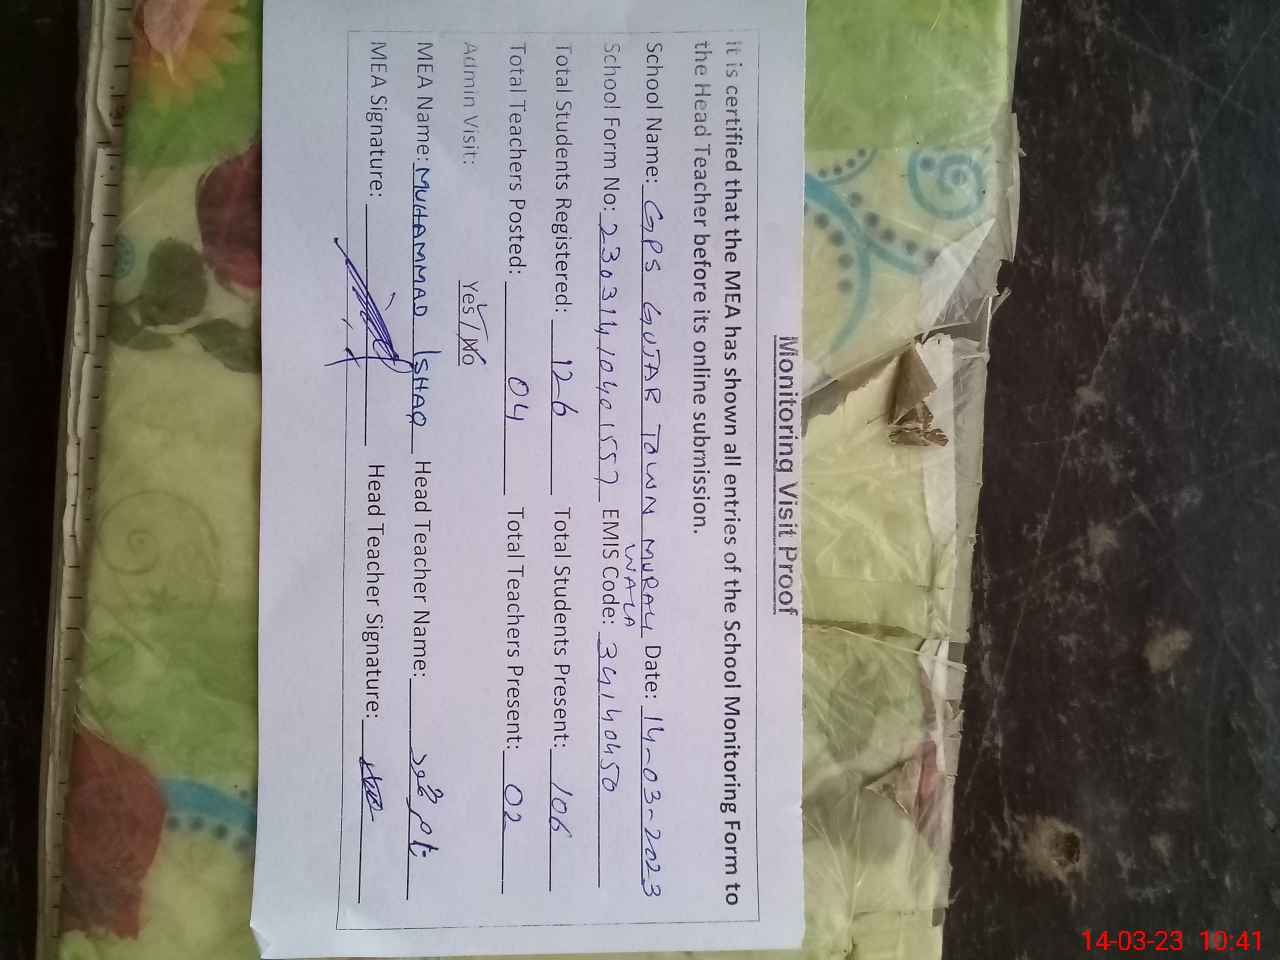 Monitoring Visit Proof
It is certified that the MEA has shown all entries of the School Monitoring Form to
the Head Teacher before its online submission.
School Name: GPS GUJAR TOWN MURALI WALA Date: 14-03-2023
School Form No: 23031410401557 EMIS Code: 34140450
Total Students Registered: 126 Total Students Present: 106
Total Teachers Posted: 04 Total Teachers Present: 02
Admin Visit: Yes / No
MEA Name: MUHAMMAD ISHAQ Head Teacher Name:
MEA Signature: Head Teacher Signature:
14-03-23 10:41